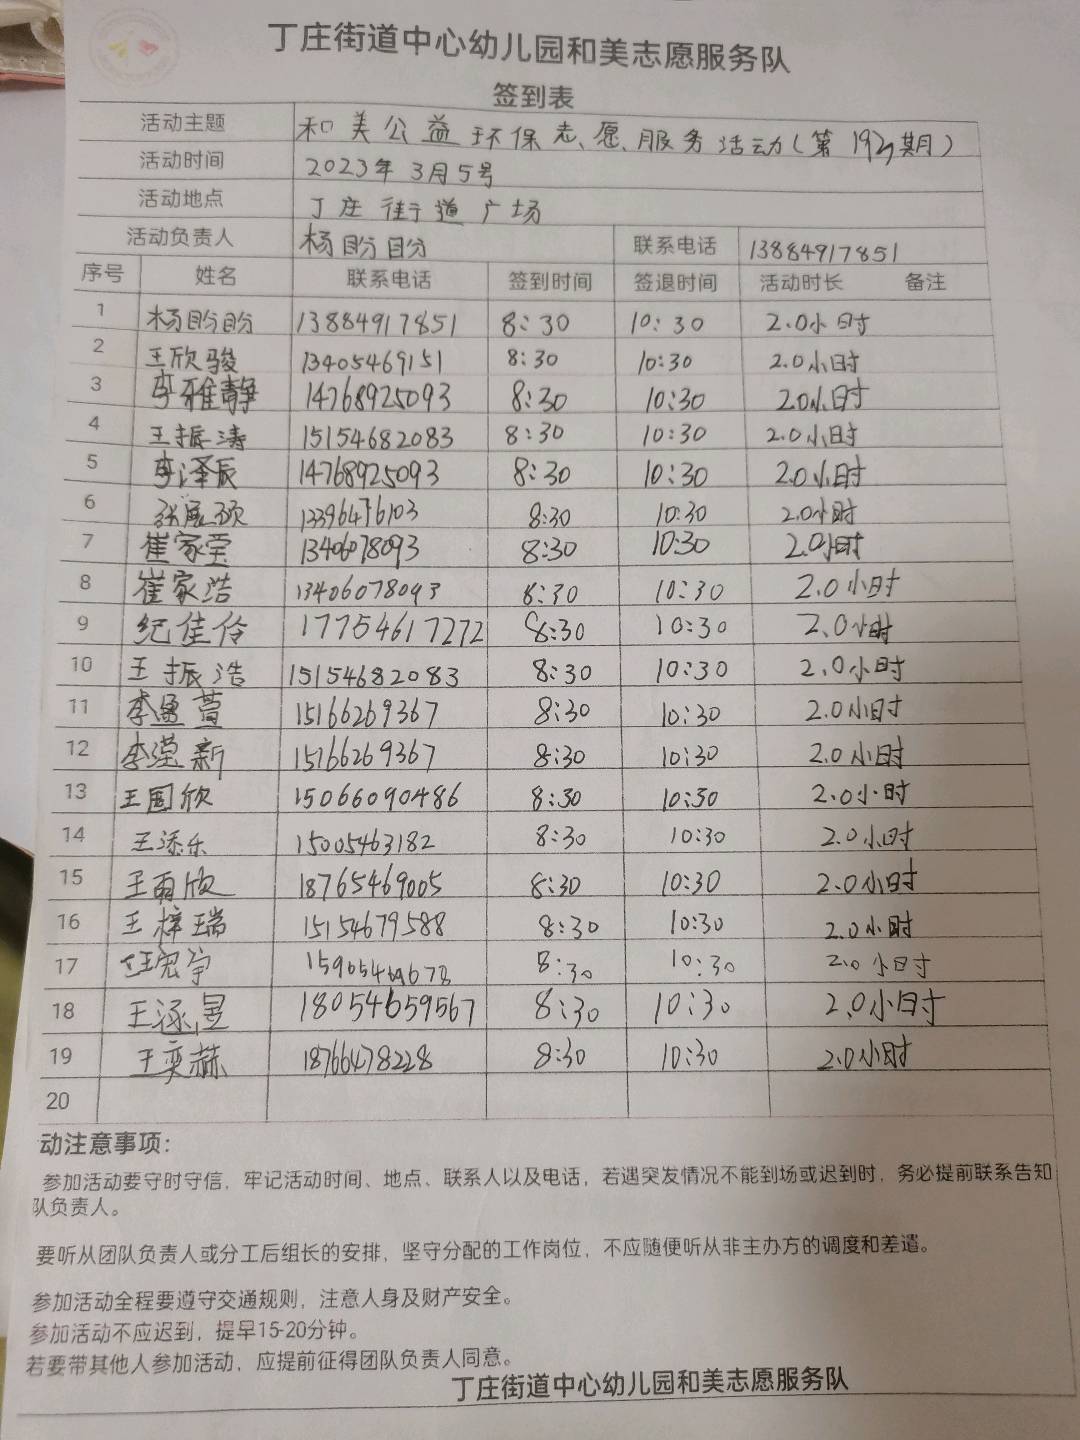 丁庄街道中心幼儿园和美志愿服务队
签到表
活动主题 和美公益环保志愿服务活动(第192期)
活动时间 2023年3月5号
活动地点 丁庄街道广场
活动负责人 杨盼盼 联系电话 13884917851
序号 姓名 联系电话 签到时间 签退时间 活动时长 备注
1 杨盼盼 13884917851 8:30 10:30 2.0小时
2 王欣骏 13405469151 8:30 10:30 2.0小时
3 李雅静 14768925093 8:30 10:30 2.0小时
4 王振涛 15154682083 8:30 10:30 2.0小时
5 李泽辰 14768925093 8:30 10:30 2.0小时
6 张展硕 13396476103 8:30 10:30 2.0小时
7 崔家莹 13406078093 8:30 10:30 2.0小时
8 崔家浩 13406078093 8:30 10:30 2.0小时
9 纪佳伶 17754617272 8:30 10:30 2.0小时
10 王振浩 15154682083 8:30 10:30 2.0小时
11 李盈萱 15166269367 8:30 10:30 2.0小时
12 李滢新 15166269367 8:30 10:30 2.0小时
13 王国欣 15066090486 8:30 10:30 2.0小时
14 王添乐 15005463182 8:30 10:30 2.0小时
15 王雨欣 18765469005 8:30 10:30 2.0小时
16 王梓瑞 15154679588 8:30 10:30 2.0小时
17 任宏宇 8:30 10:30 2.0小时
18 王涵昱 18054659567 8:30 10:30 2.0小时
19 王奕赫 18766478228 8:30 10:30 2.0小时
20
动注意事项:
参加活动要守时守信，牢记活动时间、地点、联系人以及电话，若遇突发情况不能到场或迟到时，务必提前联系告知
队负责人。
要听从团队负责人或分工后组长的安排，坚守分配的工作岗位，不应随便听从非主办方的调度和差遣。
参加活动全程要遵守交通规则，注意人身及财产安全。
参加活动不应迟到，提早15-20分钟。
若要带其他人参加活动，应提前征得团队负责人同意。
丁庄街道中心幼儿园和美志愿服务队